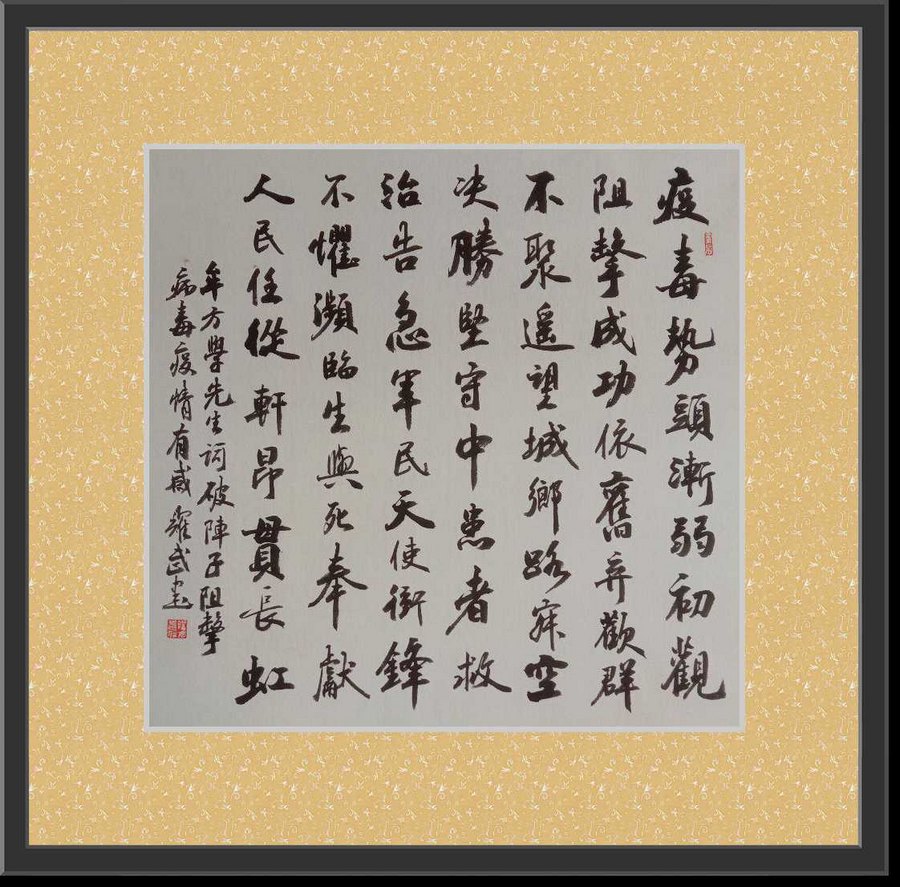 疫毒勢頭漸弱初觀
阻擊成功依舊弃歡群
不聚遥望城鄉路寂空
决勝堅守中患者救
治告急軍民天使衝鋒
不懼瀕臨生與死奉獻
人民任從軒昂貫長虹
牟方學先生詞破陣子阻擊
病毒疫情有感耀武書